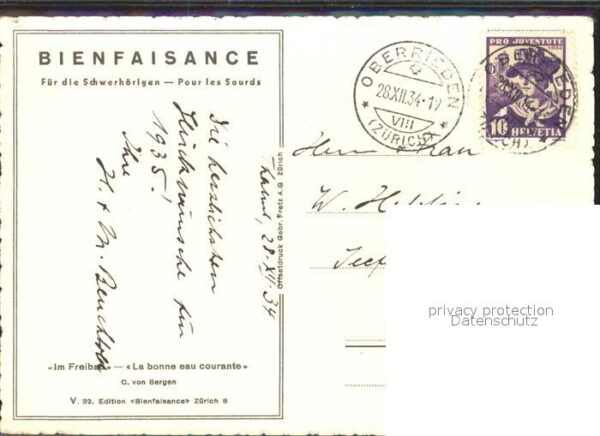 BIENFAISANCE
Für die Schwerhörigen — Pour les Sourds
Die herzlichsten
Glückwünsche für
1935!
Ihre
H. & M.
28. XII 34
Offsetdruck Gebr. Fretz A.G. Zürich
«Im Freibad» — «La bonne eau courante»
C. von Bergen
V. 32. Edition «Bienfaisance» Zürich 6
OBERRIEDEN
28.XII.34-17
VIII
(ZÜRICH)
PRO JUVENTUTE
1934
10 HELVETIA
Herrn Frau
W.
privacy protection
Datenschutz